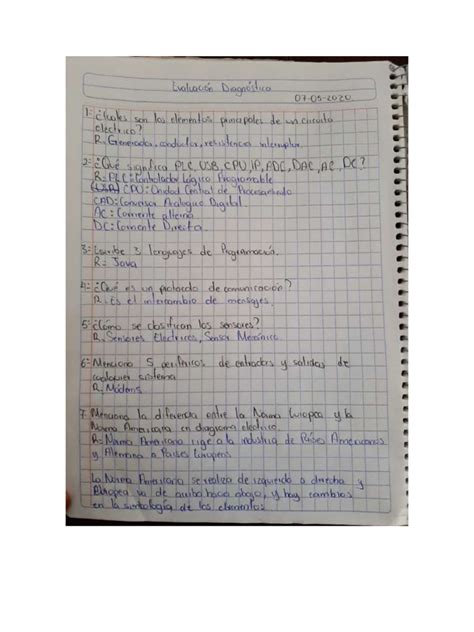 Evaluación Diagnóstica
07-05-2020
1.- ¿Cuáles son los elementos principales de un circuito
electrico?
R. Generador, conductor, resistencia interruptor.
2.- ¿Qué significa PLC, USB, CPU, IP, ADC, DAC, AC, DC?
R= PLC=Controlador Lógico Programable
(USB) CPU=Unidad Central de Procesamiento
CAD=Conversor Analogico Digital
AC=Corriente alterna
DC=Corriente Directa.
3.- Escribe 3 lenguages de Programación.
R= Java
4.- ¿Qué es un protocolo de comunicación?
R. Es el intercambio de mensajes.
5.- ¿Cómo se clasifican los sensores?
R. Sensores Electricos, Sensor Mecánico.
6.- Menciona 5 periféricos de entradas y salidas de
cualquier sistema
R= Módems
7. Menciona la diferencia entre la Norma Europea y la
Norma Americana en diagrama electrico.
R= Norma Americana rige a la industria de Países Americanos
y Alemana a Países Europeos.
La Norma Americana se realiza de izquierda a derecha y
Europea va de arriba hacia abajo, y hay cambios
en la simbología de los elementos.